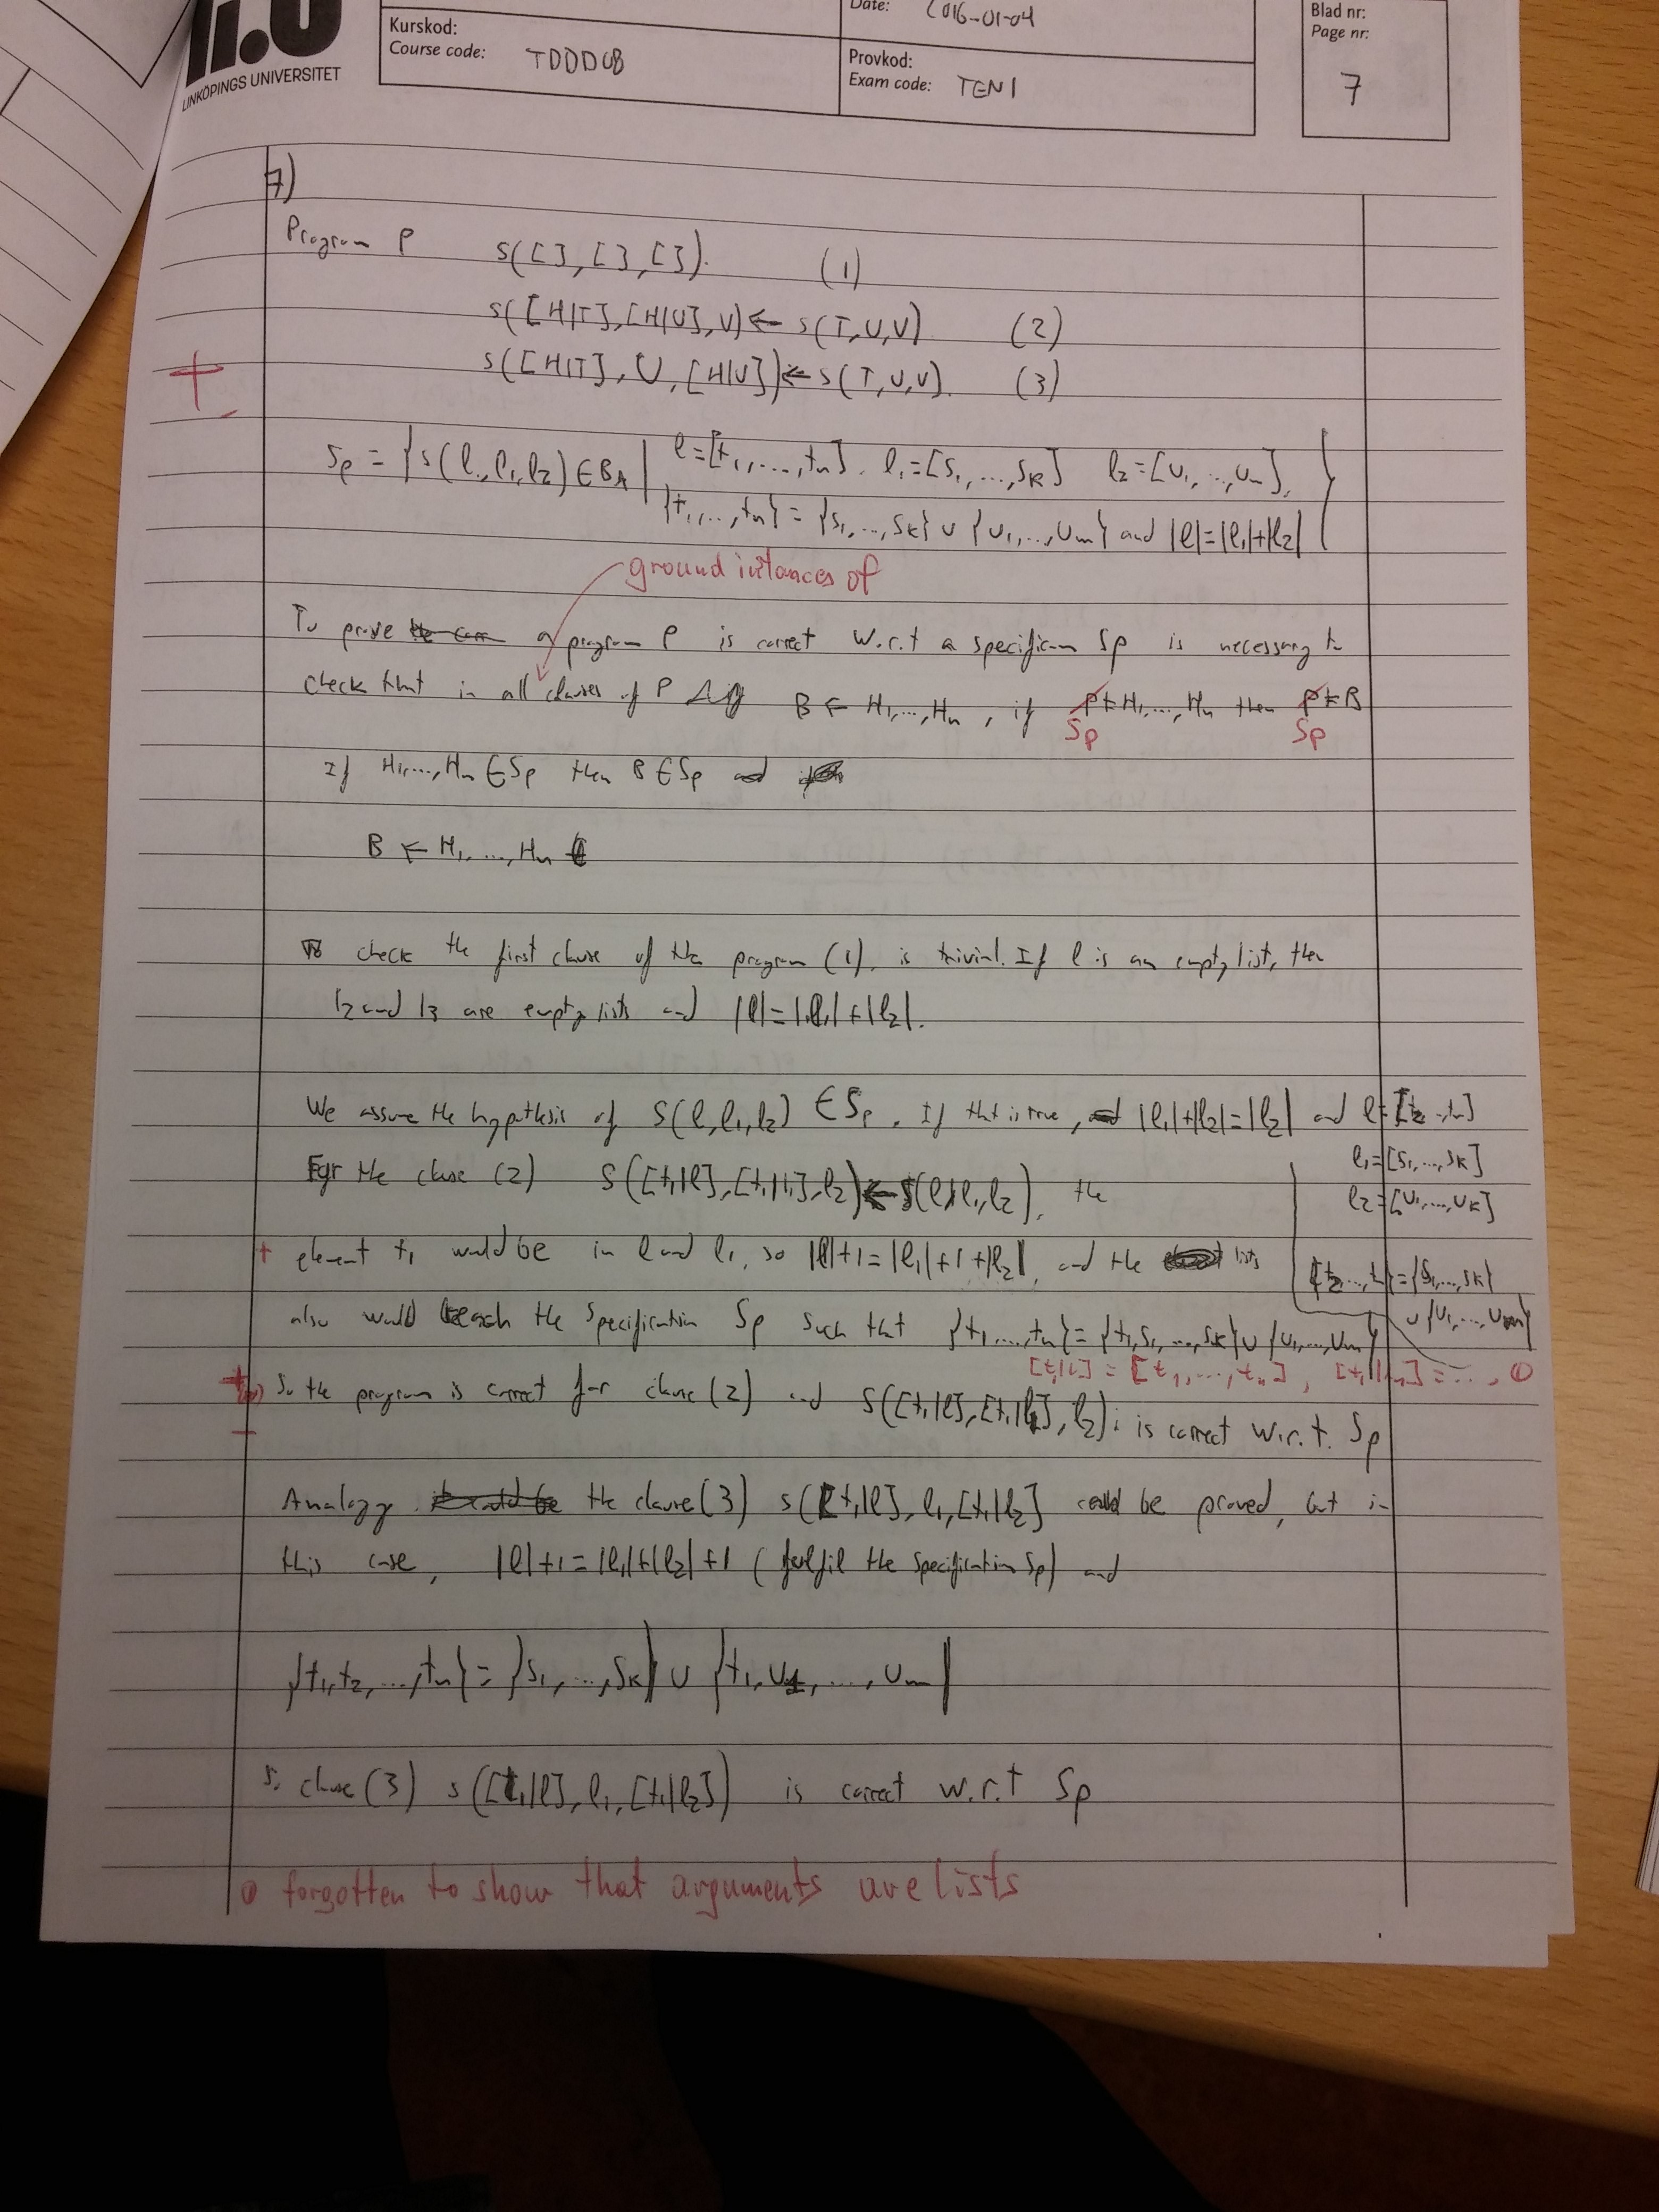 LiU
LINKÖPINGS UNIVERSITET
Kurskod:
Course code: TDDD08
Date: 2016-01-04
Provkod:
Exam code: TEN1
Blad nr:
Page nr:
7
7)
Program P s([], [], []). (1)
s([H|T], [H|U], V) ← s(T, U, V) (2)
s([H|T], U, [H|V]) ← s(T, U, V). (3)
+
Sp = {s(l, l1, l2) ∈ BA | l=[t1, ..., tn]. l1=[s1, ..., sk] l2=[u1, ..., um],
{t1, ..., tn} = {s1, ..., sk} ∪ {u1, ..., um} and |l|=|l1|+|l2| }
ground instances of
To prove a program P is correct w.r.t a specificion Sp is necessary to
check that in all clauses of P B ← H1, ..., Hn, if P ⊨ H1, ..., Hn then P ⊨ B
Sp Sp
If H1, ..., Hn ∈ Sp then B ∈ Sp and
B ← H1, ..., Hn
To check the first clause of the program (1), is trivial. If l is an empty list, then
l2 and l3 are empty lists and |l|=|l1|+|l2|.
We assume the hypothesis of S(l, l1, l2) ∈ Sp. If that is true, |l1|+|l2|=|l2| and l=[t2, ..., tn]
l1=[s1, ..., sk]
For the clause (2) S([t1|l], [t1|l1], l2) ← S(l, l1, l2), the
l2=[u1, ..., uk]
+ element t1 would be in l and l1, so |l|+1=|l1|+1+|l2|, and the lists
{t2, ..., tn}={s1, ..., sk}
∪ {u1, ..., um}
also would reach the specification Sp such that {t1, ..., tn}={t1, s1, ..., sk} ∪ {u1, ..., um}
[t1|l] = [t1, ..., tn], [t1|l1] = ..., ①
So the program is correct for clause (2) and S([t1|l], [t1|l1], l2) is correct w.r.t. Sp
Analogy the clause (3) s([t1|l], l1, [t1|l2] could be proved, but in
this case, |l|+1=|l1|+|l2|+1 (fulfil the specification Sp) and
{t1, t2, ..., tn} = {s1, ..., sk} ∪ {t1, u1, ..., um}
So clause (3) s([t1|l], l1, [t1|l2]) is correct w.r.t Sp
① forgotten to show that arguments are lists